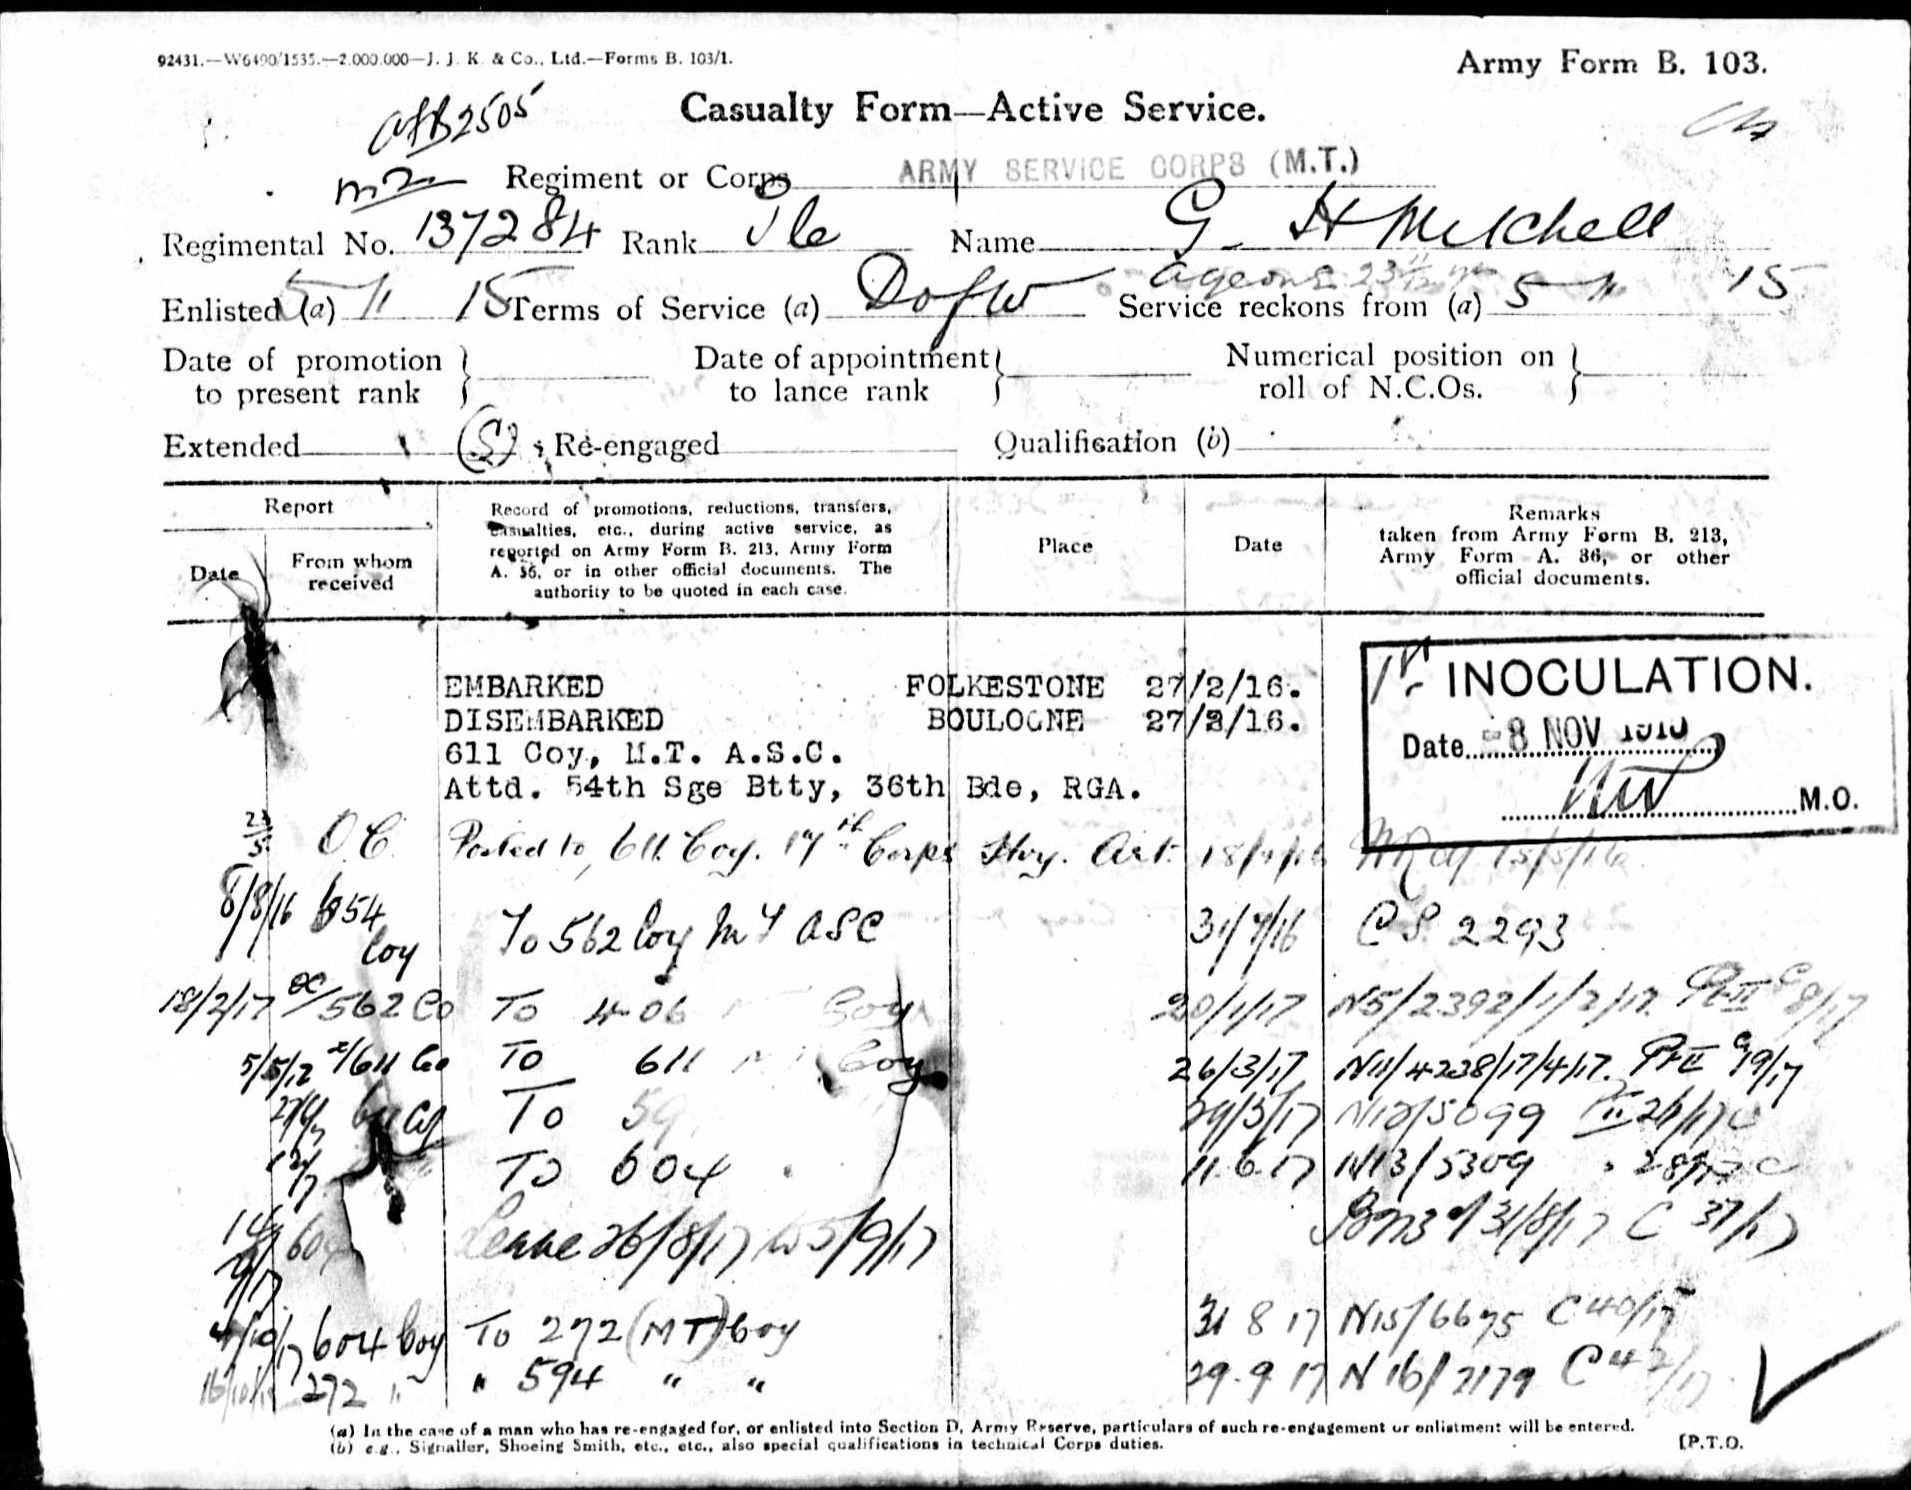 92431.—W6490/1535.—2,000,000—J. J. K. & Co., Ltd.—Forms B. 103/1.
Army Form B. 103.
AFB2505
Casualty Form—Active Service.
M2
Regiment or Corps ARMY SERVICE CORPS (M.T.)
Regimental No. 137284 Rank Pte Name G. H Mitchell
Enlisted (a) 5 11 15 Terms of Service (a) DofW Service reckons from (a) 5 11 15
Date of promotion to present rank
Date of appointment to lance rank
Numerical position on roll of N.C.Os.
Extended (S) ; Re-engaged Qualification (b)
Report
Date
From whom received
Record of promotions, reductions, transfers, casualties, etc., during active service, as reported on Army Form B. 213, Army Form A. 36, or in other official documents. The authority to be quoted in each case.
Place
Date
Remarks taken from Army Form B. 213, Army Form A. 36, or other official documents.
1st INOCULATION.
Date 8 NOV
M.O.
EMBARKED FOLKESTONE 27/2/16.
DISEMBARKED BOULOGNE 27/2/16.
611 Coy, M.T. A.S.C.
Attd. 54th Sge Btty, 36th Bde, RGA.
23/5 OC Posted to 611 Coy. 17th Corps Hvy. Art.
8/8/16 654 Coy To 562 Coy MT ASC 31/7/16 CS 2293
18/2/17 OC/562 Co To 406 Coy 20/1/17 N5/2392/1/2/17. Pt II C 8/17
611 Co To 611 Coy 26/3/17 N11/4238/17/4/17. Pt II C 19/17
To 29/3/17 N12/5099 II 26/17
To 604 11.6.17 N13/5309
604 Leave 26/8/17 to 5/9/17 31/8/17 C 37/17
4/10/17 604 Coy To 272 (MT) Coy 31 8 17 N15/6675 C 40/17
16/10/17 272 " " 594 " " 29.9 17 N16/7179 C 42/17
(a) In the case of a man who has re-engaged for, or enlisted into Section D, Army Reserve, particulars of such re-engagement or enlistment will be entered.
(b) e.g., Signaller, Shoeing Smith, etc., etc., also special qualifications in technical Corps duties.
[P.T.O.